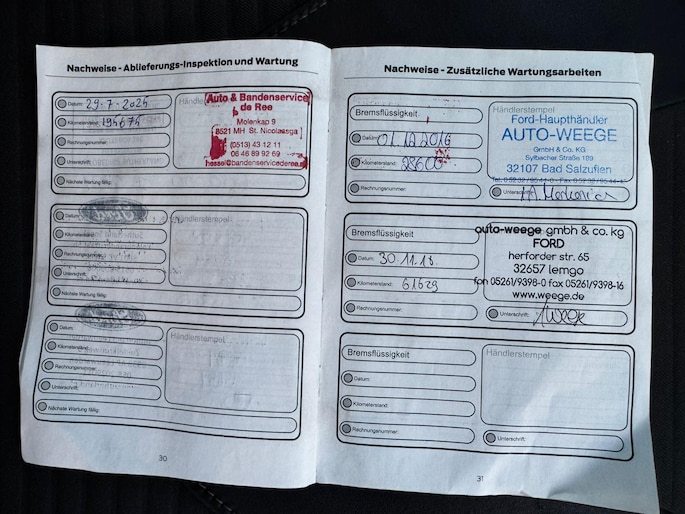 Nachweise - Ablieferungs-Inspektion und Wartung
Datum: 29-7-2025
Kilometerstand: 195675
Rechnungsnummer:
Unterschrift:
Nächste Wartung fällig:
Händlerstempel
Auto & Bandenservice
de Ree
Molenkap 9
8521 MH St. Nicolaasga
(0513) 43 12 11
06 46 89 92 69
hessel@bandenservicederee.nl
Datum:
Kilometerstand:
Rechnungsnummer:
Unterschrift:
Nächste Wartung fällig:
Händlerstempel
Datum:
Kilometerstand:
Rechnungsnummer:
Unterschrift:
Nächste Wartung fällig:
Händlerstempel
30
Nachweise - Zusätzliche Wartungsarbeiten
Bremsflüssigkeit
Datum: 01.12.2016
Kilometerstand: 28600
Rechnungsnummer:
Händlerstempel
Ford-Haupthändler
AUTO-WEEGE
GmbH & Co. KG
Sylbacher Straße 189
32107 Bad Salzuflen
Unterschrift:
Bremsflüssigkeit
Datum: 30.11.18
Kilometerstand: 61629
Rechnungsnummer:
auto-weege gmbh & co. kg
FORD
herforder str. 65
32657 lemgo
fon 05261/9398-0 fax 05261/9398-16
www.weege.de
Unterschrift: Weege
Bremsflüssigkeit
Datum:
Kilometerstand:
Rechnungsnummer:
Händlerstempel
Unterschrift:
31